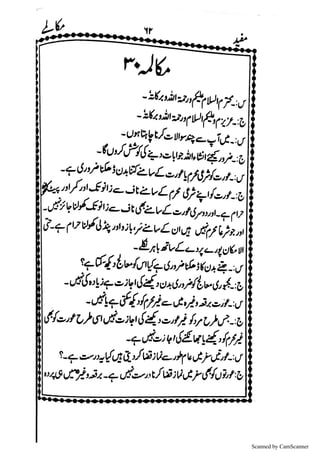 مفید ۶۲ مکالمے
مکالمہ ۳۰
س:۔ محترم السلام علیکم ورحمۃ اللہ وبرکاتہٗ۔
ج:۔ عزیزم وعلیکم السلام ورحمۃ اللہ وبرکاتہٗ۔
س:۔ میں آپ سے چند سوالات کرنا چاہتا ہوں۔
ج:۔ ضرور کیجئے انشاءاللہ جوابات دینے کی کوشش کروں گا۔
س:۔ عورت کو شرعی محرم یا عورت کے سامنے کتنا بدن ڈھکنا ضروری ہے۔
ج:۔ عورت کو اپنے شرعی محرم کے سامنے ناف سے زانو تک اور کمر اور پیٹ کھولنا
حرام ہے۔ اور دوسری عورت کے سامنے بھی ناف سے زانو تک کھولنا جائز نہیں۔
اور جو شرعاً محرم نہیں ہیں ان کے سامنے سر، بازو اور پنڈلی کھولنا حرام ہے۔ حتی
الامکان پورے پردے کے ساتھ باہر نکلے۔
س:۔ جتنے بدن کا ڈھکنا ضروری ہے کیا اس کو معالج دیکھ سکتا ہے؟
ج:۔ مجبوری معالج کو ضروری بدن دیکھنے کی اجازت ہے زیادہ کی نہیں۔
س:۔ عورت برقعہ وغیرہ میں سے غیر محرم کو دیکھ سکتی ہے یا نہیں۔
ج:۔ جس طرح مرد کو غیر عورت دیکھنے کی اجازت نہیں اسی طرح عورت کو بھی
غیر محرم کو دیکھنے یا جھانکنے کی اجازت نہیں ہے۔
س:۔ عورتیں سفر میں عام طور سے نماز قضا کر دیتی ہیں کیا یہ درست ہے۔؟
ج:۔ عورتوں کو بھی سفر میں نماز قضا کرنا درست نہیں ہے۔ برقعہ وغیرہ میں ہی پردہ
Scanned by CamScanner